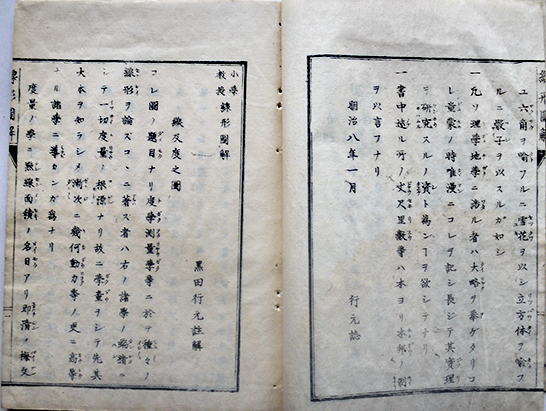 ユ六角ヲ喩フルニ雪花ヲ以シ立方体ヲ喩フ
ルニ骰子ヲ以スルガ如シ
一凡ソ理学地学ニ渉ル者ハ大略ヲ挙ゲタリコ
レ童蒙ノ時唯漫ニコレヲ記シ長シテ其實理
ヲ研究スルノ資ト為ンヿヲ欲シテナリ
一書中述ル所ノ丈尺里数等ハ本ヨリ本邦ノ制
ヲ以言フナリ
明治八年一月
行元誌
線形圖解
小學
教授 線形圖解
黒田行元註解
線及度之圖
コレ圖ノ題目ナリ度学測量学等ニ於テ種々ノ
線形ヲ論ズコヽニ著ス者ハ右ノ諸学ノ端緒ニ
シテ一切度量ノ根源ナリ故ニ学童ヲシテ先其
大本ヲ知ラシメ漸次ニ幾何動力等ノ史ニ高等
ナル諸学ニ導カンガ為ナリ
度量ノ学ニ点線面積ノ名目アリ即漬ノ極欠
線形圖解